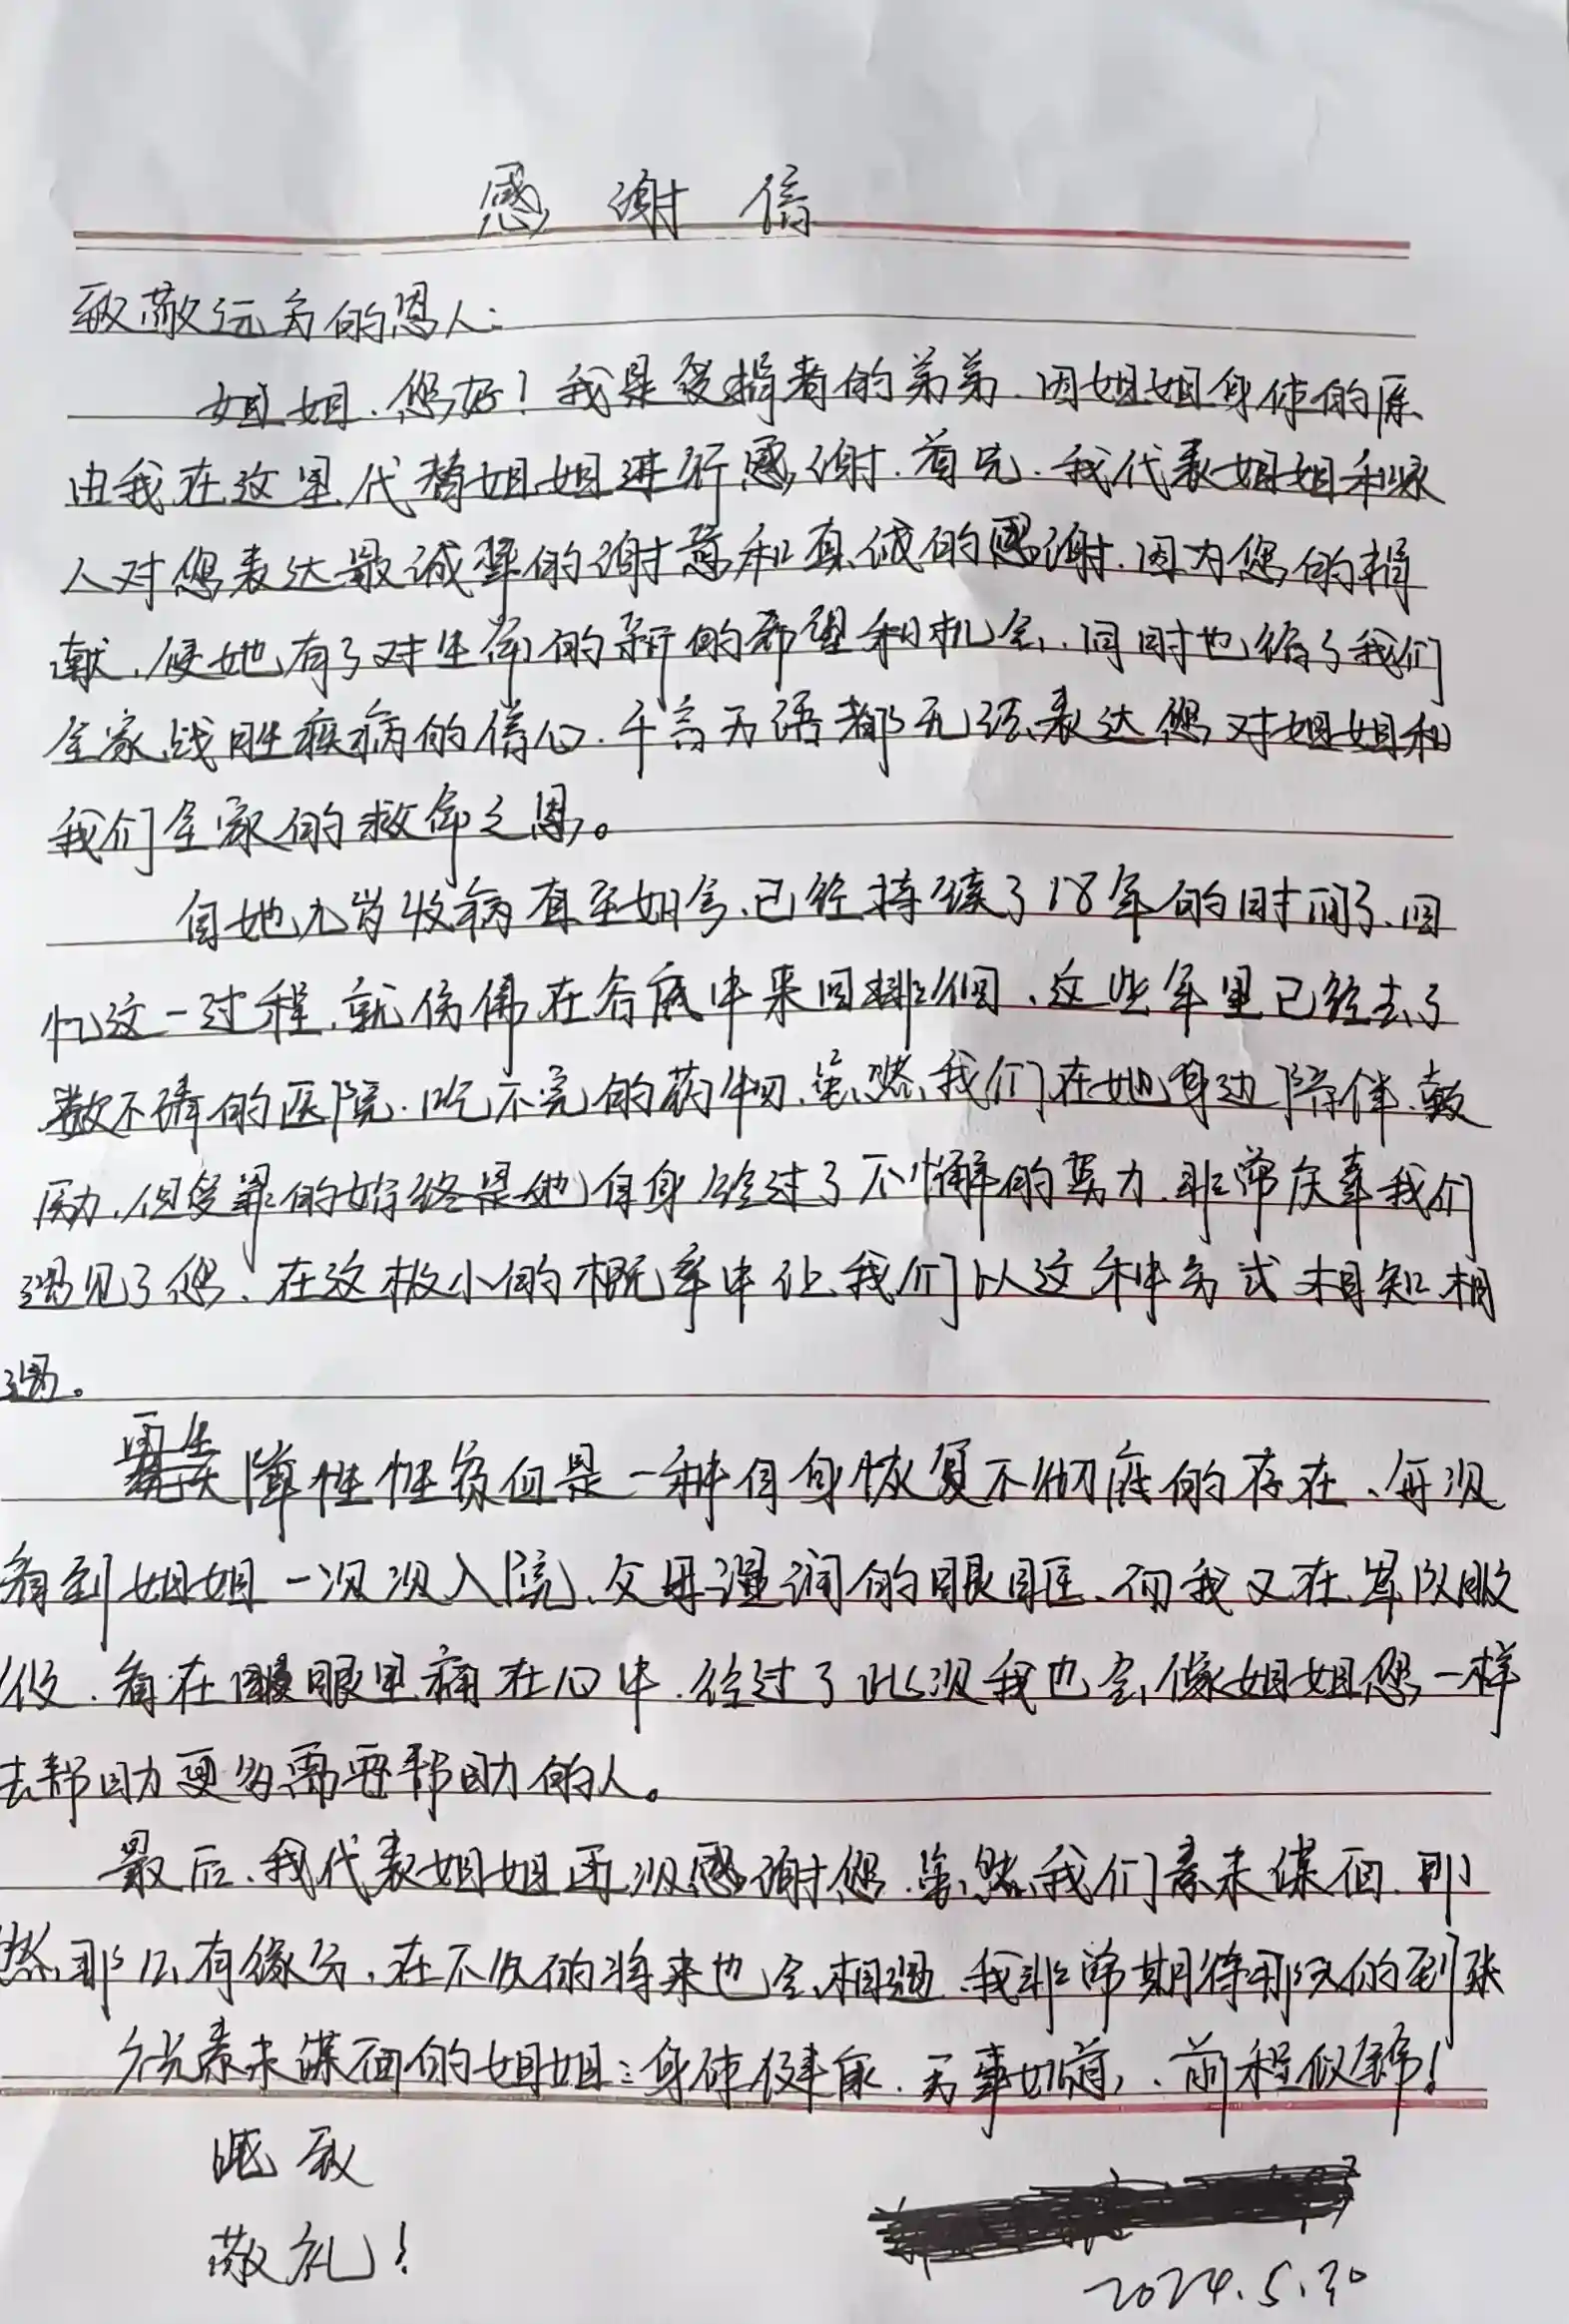 感谢信
致敬远方的恩人:
姐姐、您好！我是受捐者的弟弟.因姐姐身体的原
由我在这里代替姐姐进行感谢.首先.我代表姐姐和家
人对您表达最诚挚的谢意和真诚的感谢.因为您的捐
献、使她有了对生命的新的希望和机会、同时也给了我们
全家战胜疾病的信心.千言万语都无法表达您对姐姐和
我们全家的救命之恩。
自她九岁发病直至如今、已经持续了18年的时间了、回
忆这一过程、就仿佛在谷底中来回徘徊、这些年里已经去了
数不清的医院.吃不完的药物、虽然我们在她身边陪伴、鼓
励、但受罪的始终是她自身经过了不懈的努力.非常庆幸我们
遇见了您、在这极小的概率中让我们以这种方式相知相
遇。
障性性贫血是一种自身恢复不彻底的存在、每次
看到姐姐一次次入院、父母湿润的眼眶、而我又在部队服
役.看在眼里痛在心中.经过了此次我也会像姐姐您一样
去帮助更多需要帮助的人。
最后、我代表姐姐再次感谢您.虽然我们素未谋面.既
然那么有缘分、在不久的将来也会相遇、我非常期待那天的到来
祝素未谋面的姐姐:身体健康.万事如意、前程似锦!
此致
敬礼!
2024.5.30